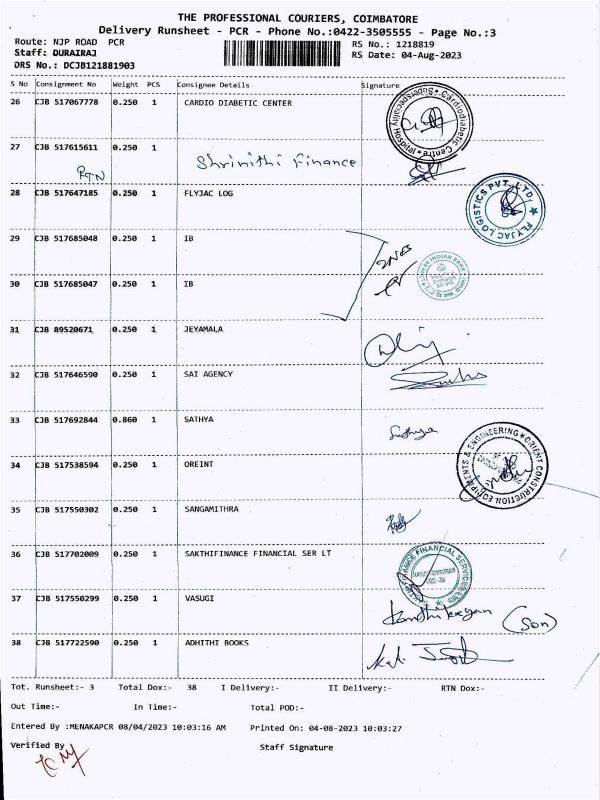 THE PROFESSIONAL COURIERS, COIMBATORE
Delivery Runsheet - PCR - Phone No.:0422-3505555 - Page No.:3
Route: NJP ROAD PCR
RS No.: 1218819
Staff: DURAIRAJ
RS Date: 04-Aug-2023
DRS No.: DCJB121881903
S No Consignment No Weight PCS Consignee Details Signature
26 CJB 517067778 0.250 1 CARDIO DIABETIC CENTER
Cardiodiabetic Centre Hospital
27 CJB 517615611 0.250 1 Shrinithi Finance
RTN
28 CJB 517647185 0.250 1 FLYJAC LOG
FLYJAC LOGISTICS PVT. LTD.
29 CJB 517685048 0.250 1 IB
INDIAN BANK
30 CJB 517685047 0.250 1 IB
31 CJB 89520671 0.250 1 JEYAMALA
32 CJB 517646590 0.250 1 SAI AGENCY
33 CJB 517692844 0.860 1 SATHYA
Sathya
34 CJB 517538594 0.250 1 OREINT
ORIENT CONSTRUCTION EQUIPMENTS & ENGINEERING
35 CJB 517550302 0.250 1 SANGAMITHRA
36 CJB 517702009 0.250 1 SAKTHIFINANCE FINANCIAL SER LT
FINANCE FINANCIAL SERVICES
37 CJB 517550299 0.250 1 VASUGI
(Son)
38 CJB 517722590 0.250 1 ADHITHI BOOKS
Tot. Runsheet:- 3 Total Dox:- 38 I Delivery:- II Delivery:- RTN Dox:-
Out Time:- In Time:- Total POD:-
Entered By :MENAKAPCR 08/04/2023 10:03:16 AM Printed On: 04-08-2023 10:03:27
Verified By
Staff Signature